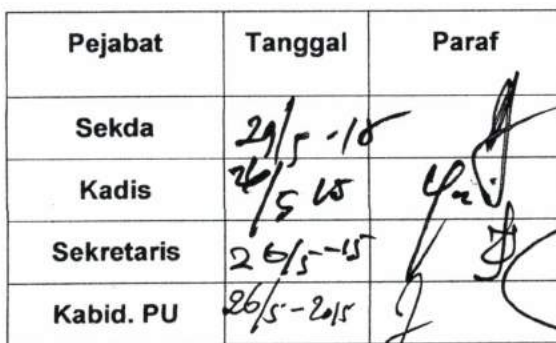 Pejabat Tanggal Paraf
Sekda 29/5-15
Kadis 26/5 15
Sekretaris 26/5-15
Kabid. PU 26/5-2015